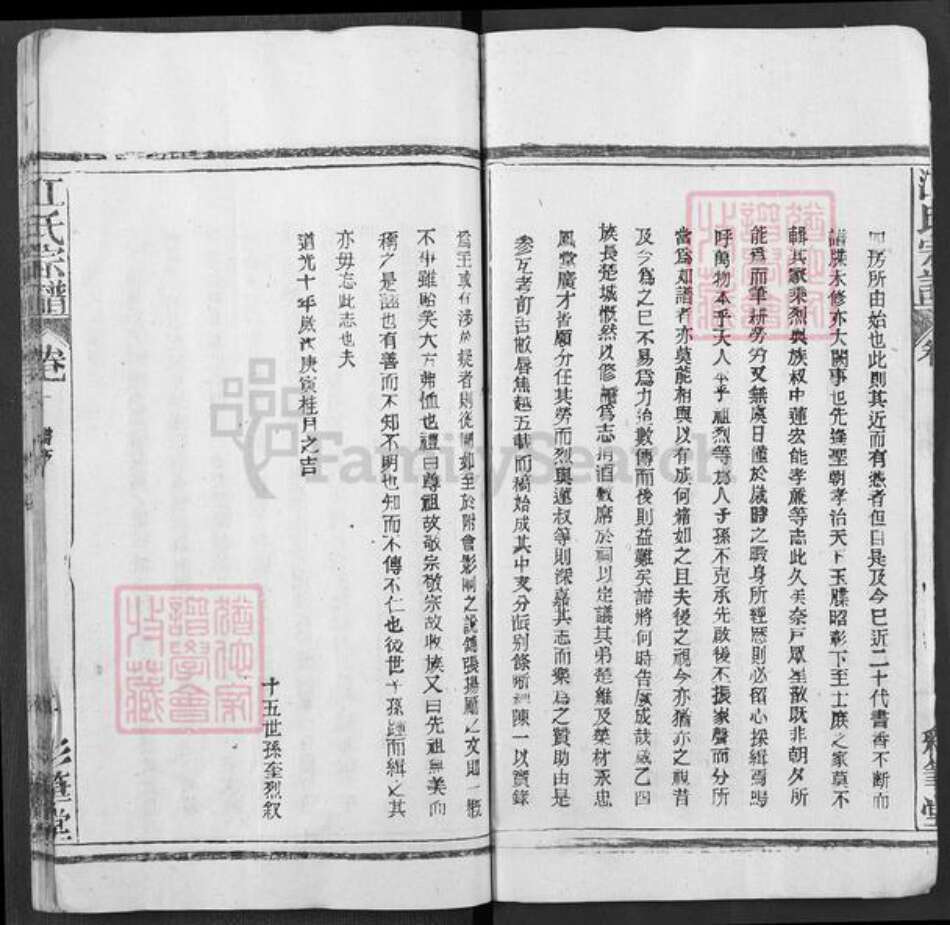 四房所由始也此則其近而有憑者但自是及今已近二十代書香不斷而
譜牒未修亦大闕事也先逢聖朝孝治天下玉牒昭彰下至士庶之家莫不
輯其家乘烈與族叔中蓮宏能孝廉等志此久矣奈戶眾星散既非朝夕所
能為而筆耕勞勞又無虞日僅於歲時之暇身所經歷則必留心採緝焉嗚
呼萬物本乎天人本乎祖烈等為人子孫不克承先啟後不振家聲而分所
當為如譜者亦莫能相與以有成何痛如之且夫後之視今亦猶今之視昔
及今為之已不易為力治數傳而後則益難矣諸將何時告厥成哉歲乙酉
族長楚城慨然以修譜為志消酒數席於祠以定議其弟楚維及榮材永忠
鳳堂廣才皆願分任其勞而烈與蓮叔等則深嘉其志而樂為之贊助由是
參互考訂舌敝唇焦越五載而稿始成其中支分派別條晰縷陳一以實錄
為主或有涉於疑者則從闕如至於附會影响之說鋪張揚厲之文則一概
不事雖貽笑大方弗恤也禮曰尊祖故敬宗敬宗故收族又曰先祖無美而
稱之是誣也有善而不知不明也知而不傳不仁也後世子孫踵而緝之其
亦毋忘此志也夫
道光十年歲次庚寅桂月之吉
十五世孫奎烈叙
江氏宗譜
卷一
譜序
彩筆堂
江氏宗譜
卷
彩筆堂
猶他家
譜學會
收藏
猶他家
譜學會
收藏
FamilySearch